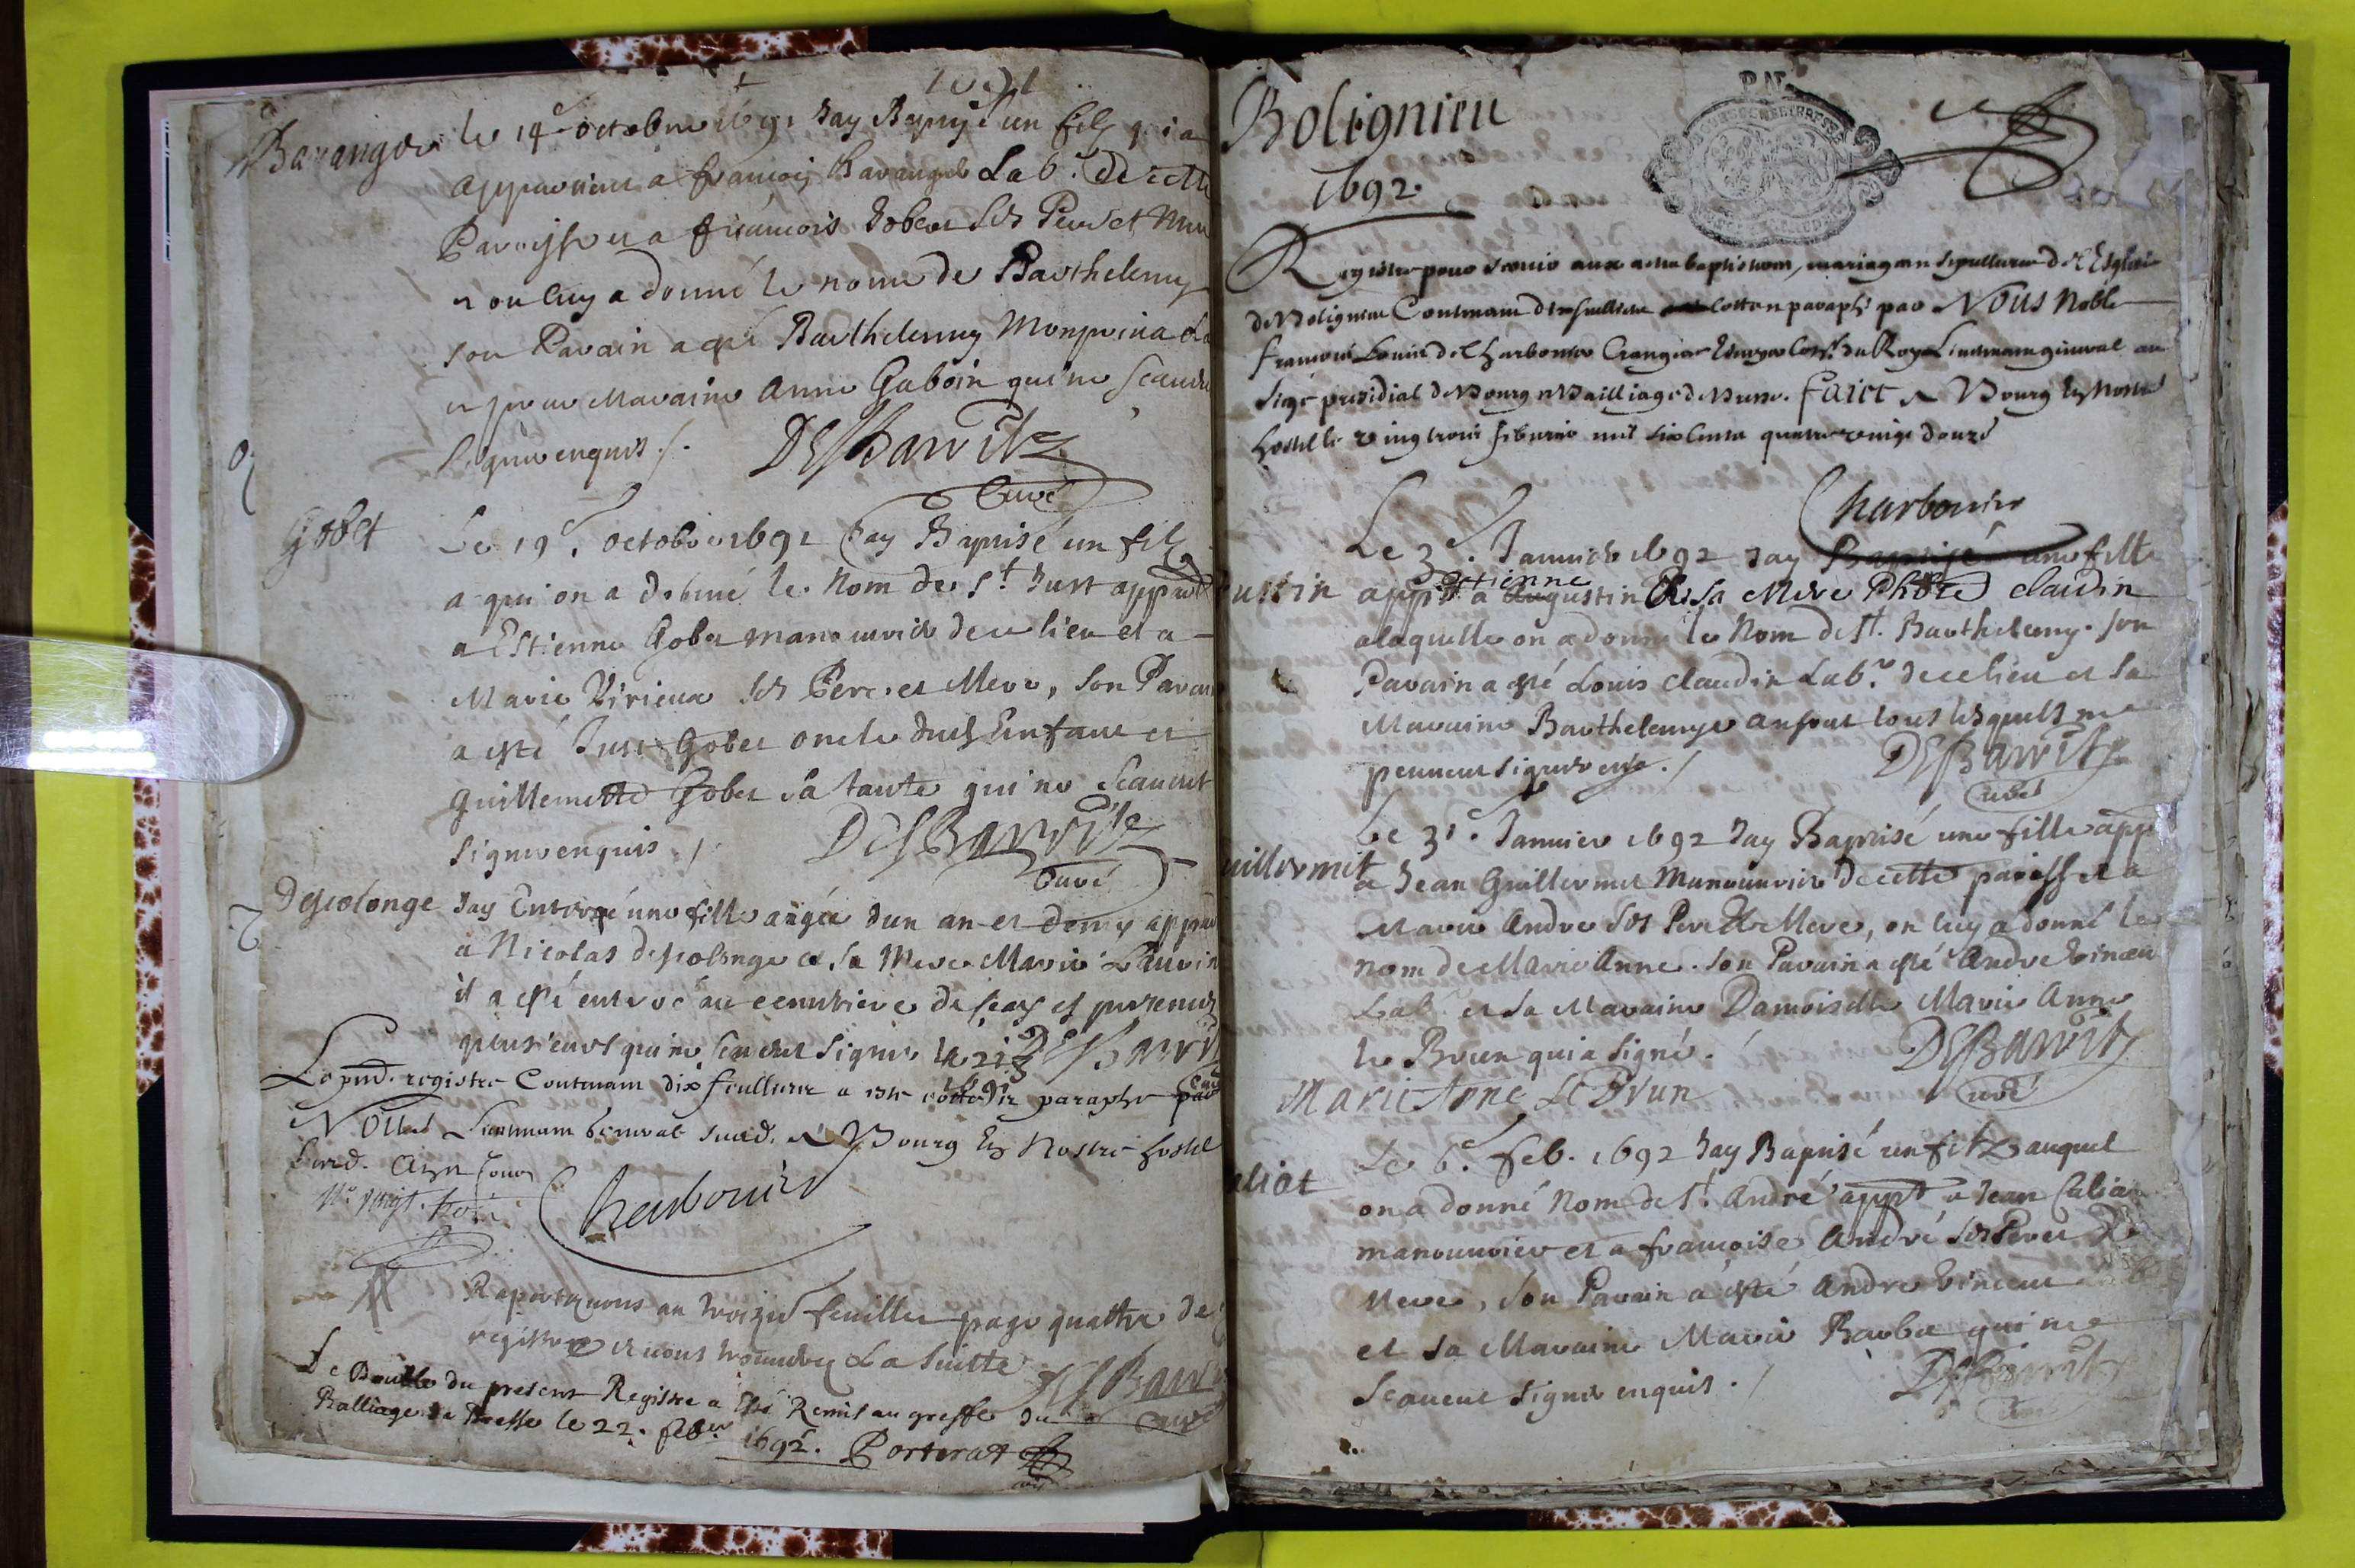 1691
Baranger
le 14e octobre 1691 Jay Baptisé un filz qui a
appartient a francois Baranger Lab.r de cette
Paroisse et a francoise Gobet ses Pere et Mere
et on luy a donné le nom de Barthelemy
son Parain a esté Barthelemy
et pour Maraine Anne Gaboin qui ne scauent
signer enquis ./.
DesBarrite
Curé
Gobet
Le 19e. octobre 1691 Jay Baptisé un filz
a qui on a donné le Nom de St Just appart
a Estienne Gobet manouurier de ce lieu et a
Marie Virieux ses Pere et Mere, son Parain
a esté Just Gobet oncle dud Enfant et
Guillemette Gobet sa tante qui ne scauent
signer enquis ./
DesBarrite
Curé
Desolonge
Jay Enterré une fille aagée dun an et demy appart
a Nicolas desolonge et sa Mere Marie
il a esté enterré au cemetiere de ceans et presents
plusieurs qui ne scauent signer le
Curé
Le pnt. registre Contenant dix feulliets a esté cotté et paraphé par
Nous Lieutenant general susd. a Bourg En Nostre hostel
Lesd. An et Jour
Charbonier
Raportez vous au troizie feuillet page quattre de
registre et vous trouuerez La suitte
DesBarrite
Curé
Le Double du present Registre a Esté Remis au greffe du
Balliage de Bresse le 22. feb.er
1692. Porterat
Bolignieu
1692.
Registre pour seruir aux actes baptistaires, mariages et sepultures de l'Esglise
de Bolignieu Contenant dix feulliets cottés et paraphé par Nous Noble
francois Louis de Charbonier Crangier Escuyer Cons.r du Roy Lieutenant general au
siege presidial de Bourg et Bailliage de Bresse. Faict a Bourg En Nostre
hostel le vingt trois feburier mil six Cents quattre vingt douze
Charbonier
Le 3e. Januier 1692 Jay Baptisé une fille
ustin
estienne
appt a Augustin et sa Mere Phte claudin
a laquelle on a donné le Nom de St. Barthelemy. son
Parain a esté Louis claudin Lab.r de ce lieu et sa
Maraine Barthelemye tous lesquels ne
peuuent signer enq. /
DesBarrite
Curé
Le 31e. Januier 1692 Jay Baptisé une fille app
uillermit
a Jean Guillermet Manouurier de cette paroisse et a
Marie Andre ses Pere et Mere, on luy a donné le
nom de Marie Anne. son Parain a esté Andre Vincen
Lab.r et sa Maraine Damoiselle Marie Anne
le Brun qui a signé. /
DesBarrite
Curé
Marie Anne Le Brun
Le 6e. feb. 1692 Jay Baptisé un filz auquel
aliat
on a donné Nom de St. André appt a Jean Caliat
manouurier et a francoise André ses Pere et
Mere, son Parain a esté Andre Vincent
et sa Maraine Marie Barbe qui ne
scauent signer enquis. /
DesBarrite
Curé